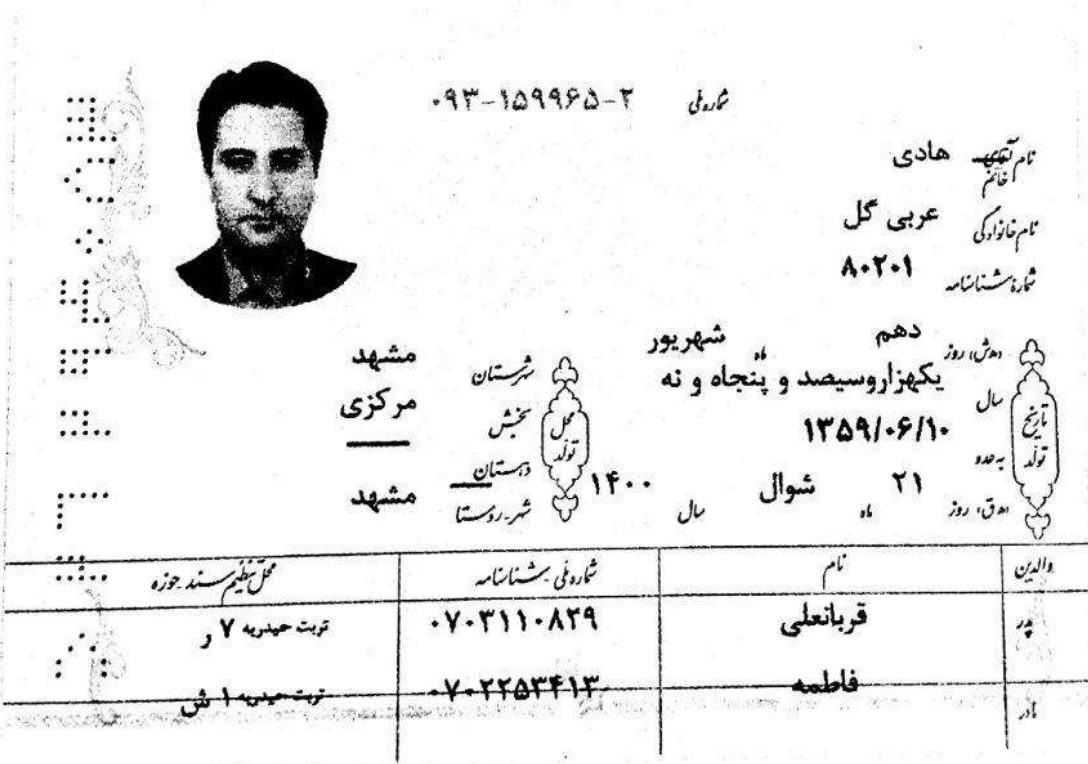 شماره ملی ۰۹۳-۱۵۹۹۶۵-۲
نام آقای خانم هادی
نام خانوادگی عربی گل
شماره شناسنامه ۸۰۲۰۱
تاریخ تولد
«ه‍.ش» روز دهم ماه شهریور
سال یکهزاروسیصد و پنجاه و نه
به عدد ۱۳۵۹/۰۶/۱۰
«ه‍.ق» روز ۲۱ ماه شوال سال ۱۴۰۰
محل تولد
شهرستان مشهد
بخش مرکزی
دهستان
شهر-روستا مشهد
والدین نام شماره ملی شناسنامه محل تنظیم سند حوزه
پدر قربانعلی ۰۷۰۳۱۱۰۸۲۹ تربت حیدریه ۷ ر
مادر فاطمه ۰۷۰۲۲۵۳۴۱۳ تربت حیدریه ۱ ش